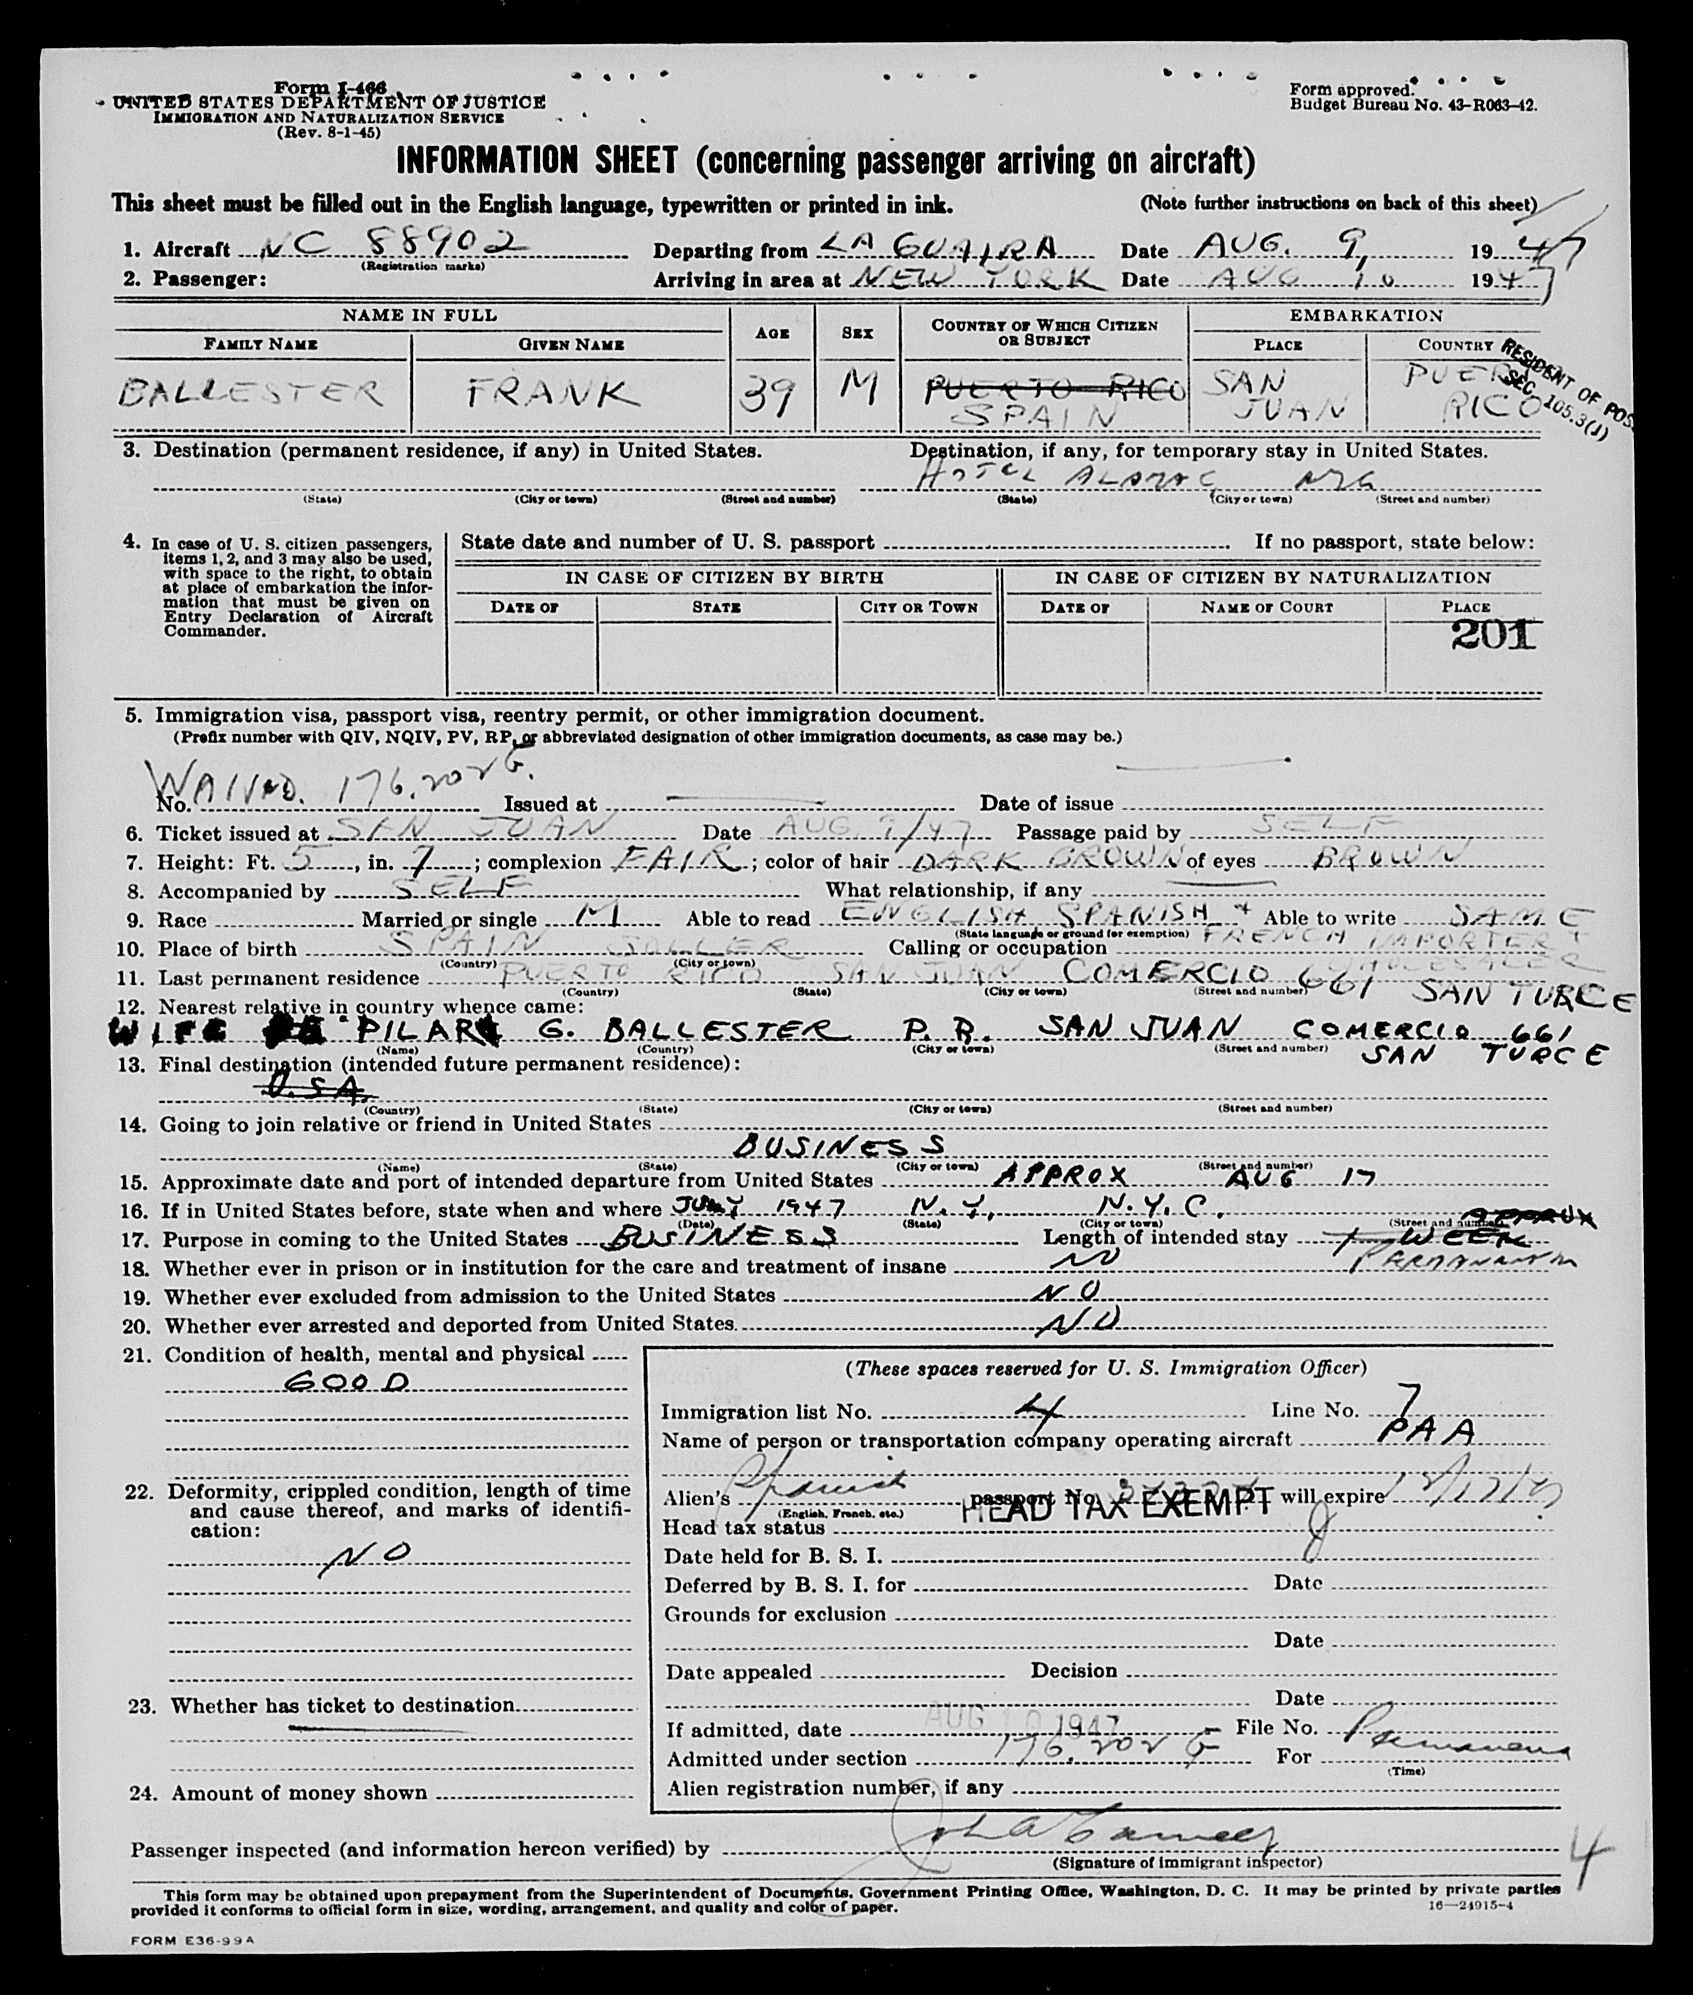 Form I-466
UNITED STATES DEPARTMENT OF JUSTICE
IMMIGRATION AND NATURALIZATION SERVICE
(Rev. 8-1-45)
Form approved.
Budget Bureau No. 43-R063-42.
INFORMATION SHEET (concerning passenger arriving on aircraft)
This sheet must be filled out in the English language, typewritten or printed in ink. (Note further instructions on back of this sheet)
1. Aircraft NC 88902 Departing from LA GUAIRA Date AUG. 9, 1947
(Registration marks)
2. Passenger: Arriving in area at NEW YORK Date AUG 10 1947
NAME IN FULL AGE SEX COUNTRY OF WHICH CITIZEN OR SUBJECT EMBARKATION
FAMILY NAME GIVEN NAME PLACE COUNTRY
RESIDENT OF POSS.
SEC. 105.3(J)
BALLESTER FRANK 39 M PUERTO RICO SAN PUERTO
SPAIN JUAN RICO
3. Destination (permanent residence, if any) in United States. Destination, if any, for temporary stay in United States.
HOTEL ALAMAC NYC
(State) (City or town) (Street and number) (State) (City or town) (Street and number)
4. In case of U. S. citizen passengers, items 1, 2, and 3 may also be used, with space to the right, to obtain at place of embarkation the information that must be given on Entry Declaration of Aircraft Commander.
State date and number of U. S. passport If no passport, state below:
IN CASE OF CITIZEN BY BIRTH IN CASE OF CITIZEN BY NATURALIZATION
DATE OF STATE CITY OR TOWN DATE OF NAME OF COURT PLACE
201
5. Immigration visa, passport visa, reentry permit, or other immigration document.
(Prefix number with QIV, NQIV, PV, RP, or abbreviated designation of other immigration documents, as case may be.)
No. WAIVED. 176.202 G. Issued at Date of issue
6. Ticket issued at SAN JUAN Date AUG. 9/47 Passage paid by SELF
7. Height: Ft. 5, in. 7; complexion FAIR; color of hair DARK BROWN of eyes BROWN
8. Accompanied by SELF What relationship, if any
9. Race Married or single M Able to read ENGLISH SPANISH + Able to write SAME
(State language or ground for exemption) FRENCH
10. Place of birth SPAIN SOLLER Calling or occupation IMPORTER +
(Country) (City or town) WHOLESALER
11. Last permanent residence PUERTO RICO SAN JUAN COMERCIO 661 SAN TURCE
(Country) (State) (City or town) (Street and number)
12. Nearest relative in country whence came:
WIFE PILAR G. BALLESTER P. R. SAN JUAN COMERCIO 661
(Name) (Country) (City or town) (Street and number) SAN TURCE
13. Final destination (intended future permanent residence):
U.S.A.
(Country) (State) (City or town) (Street and number)
14. Going to join relative or friend in United States
BUSINESS
(Name) (State) (City or town) (Street and number)
15. Approximate date and port of intended departure from United States APPROX AUG 17
16. If in United States before, state when and where JULY 1947 N. Y. N. Y. C.
(Date) (State) (City or town) (Street and number) APPROX
17. Purpose in coming to the United States BUSINESS Length of intended stay 1 WEEK
PERMANENT
18. Whether ever in prison or in institution for the care and treatment of insane NO
19. Whether ever excluded from admission to the United States NO
20. Whether ever arrested and deported from United States. NO
21. Condition of health, mental and physical
GOOD
22. Deformity, crippled condition, length of time and cause thereof, and marks of identification:
NO
23. Whether has ticket to destination
24. Amount of money shown
(These spaces reserved for U. S. Immigration Officer)
Immigration list No. 4 Line No. 7
Name of person or transportation company operating aircraft PAA
Alien's Spanish passport No. will expire
(English, French, etc.)
Head tax status HEAD TAX EXEMPT
Date held for B. S. I.
Deferred by B. S. I. for Date
Grounds for exclusion
Date
Date appealed Decision
Date
If admitted, date AUG 10 1947 File No.
Admitted under section 176.202 G For Permanent
(Time)
Alien registration number, if any
Passenger inspected (and information hereon verified) by
(Signature of immigrant inspector)
4
This form may be obtained upon prepayment from the Superintendent of Documents, Government Printing Office, Washington, D. C. It may be printed by private parties
provided it conforms to official form in size, wording, arrangement, and quality and color of paper.
16—24915-4
FORM E36-99A